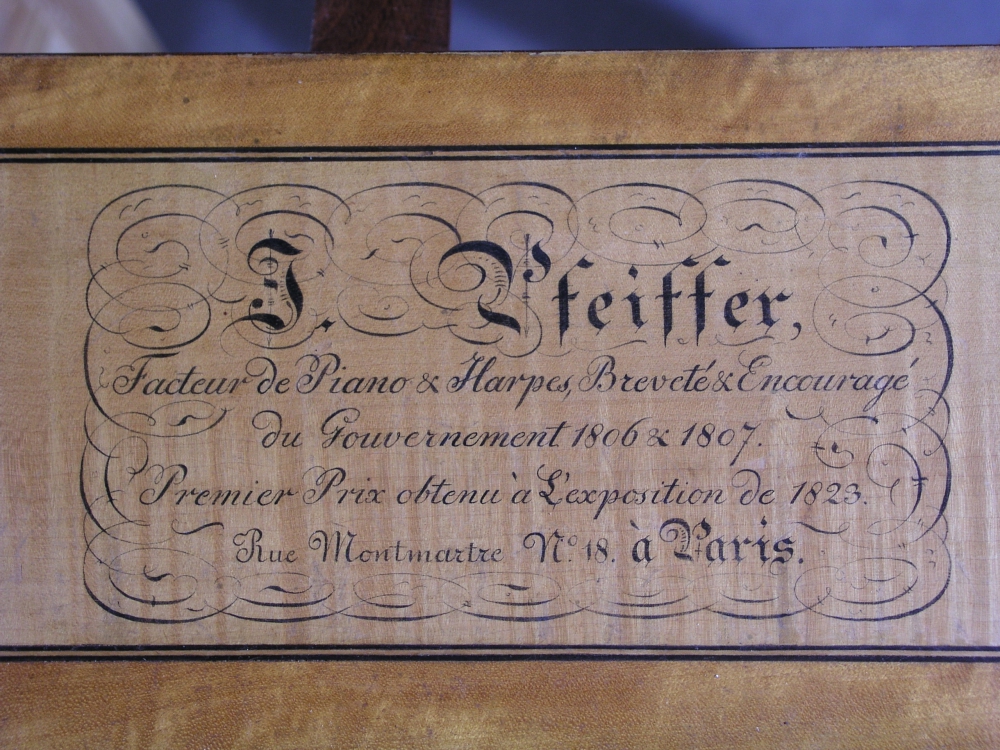 J. Pfeiffer,
Facteur de Piano & Harpes, Breveté & Encouragé
du Gouvernement 1806 & 1807.
Premier Prix obtenu à L'exposition de 1823.
Rue Montmartre N° 18. à Paris.